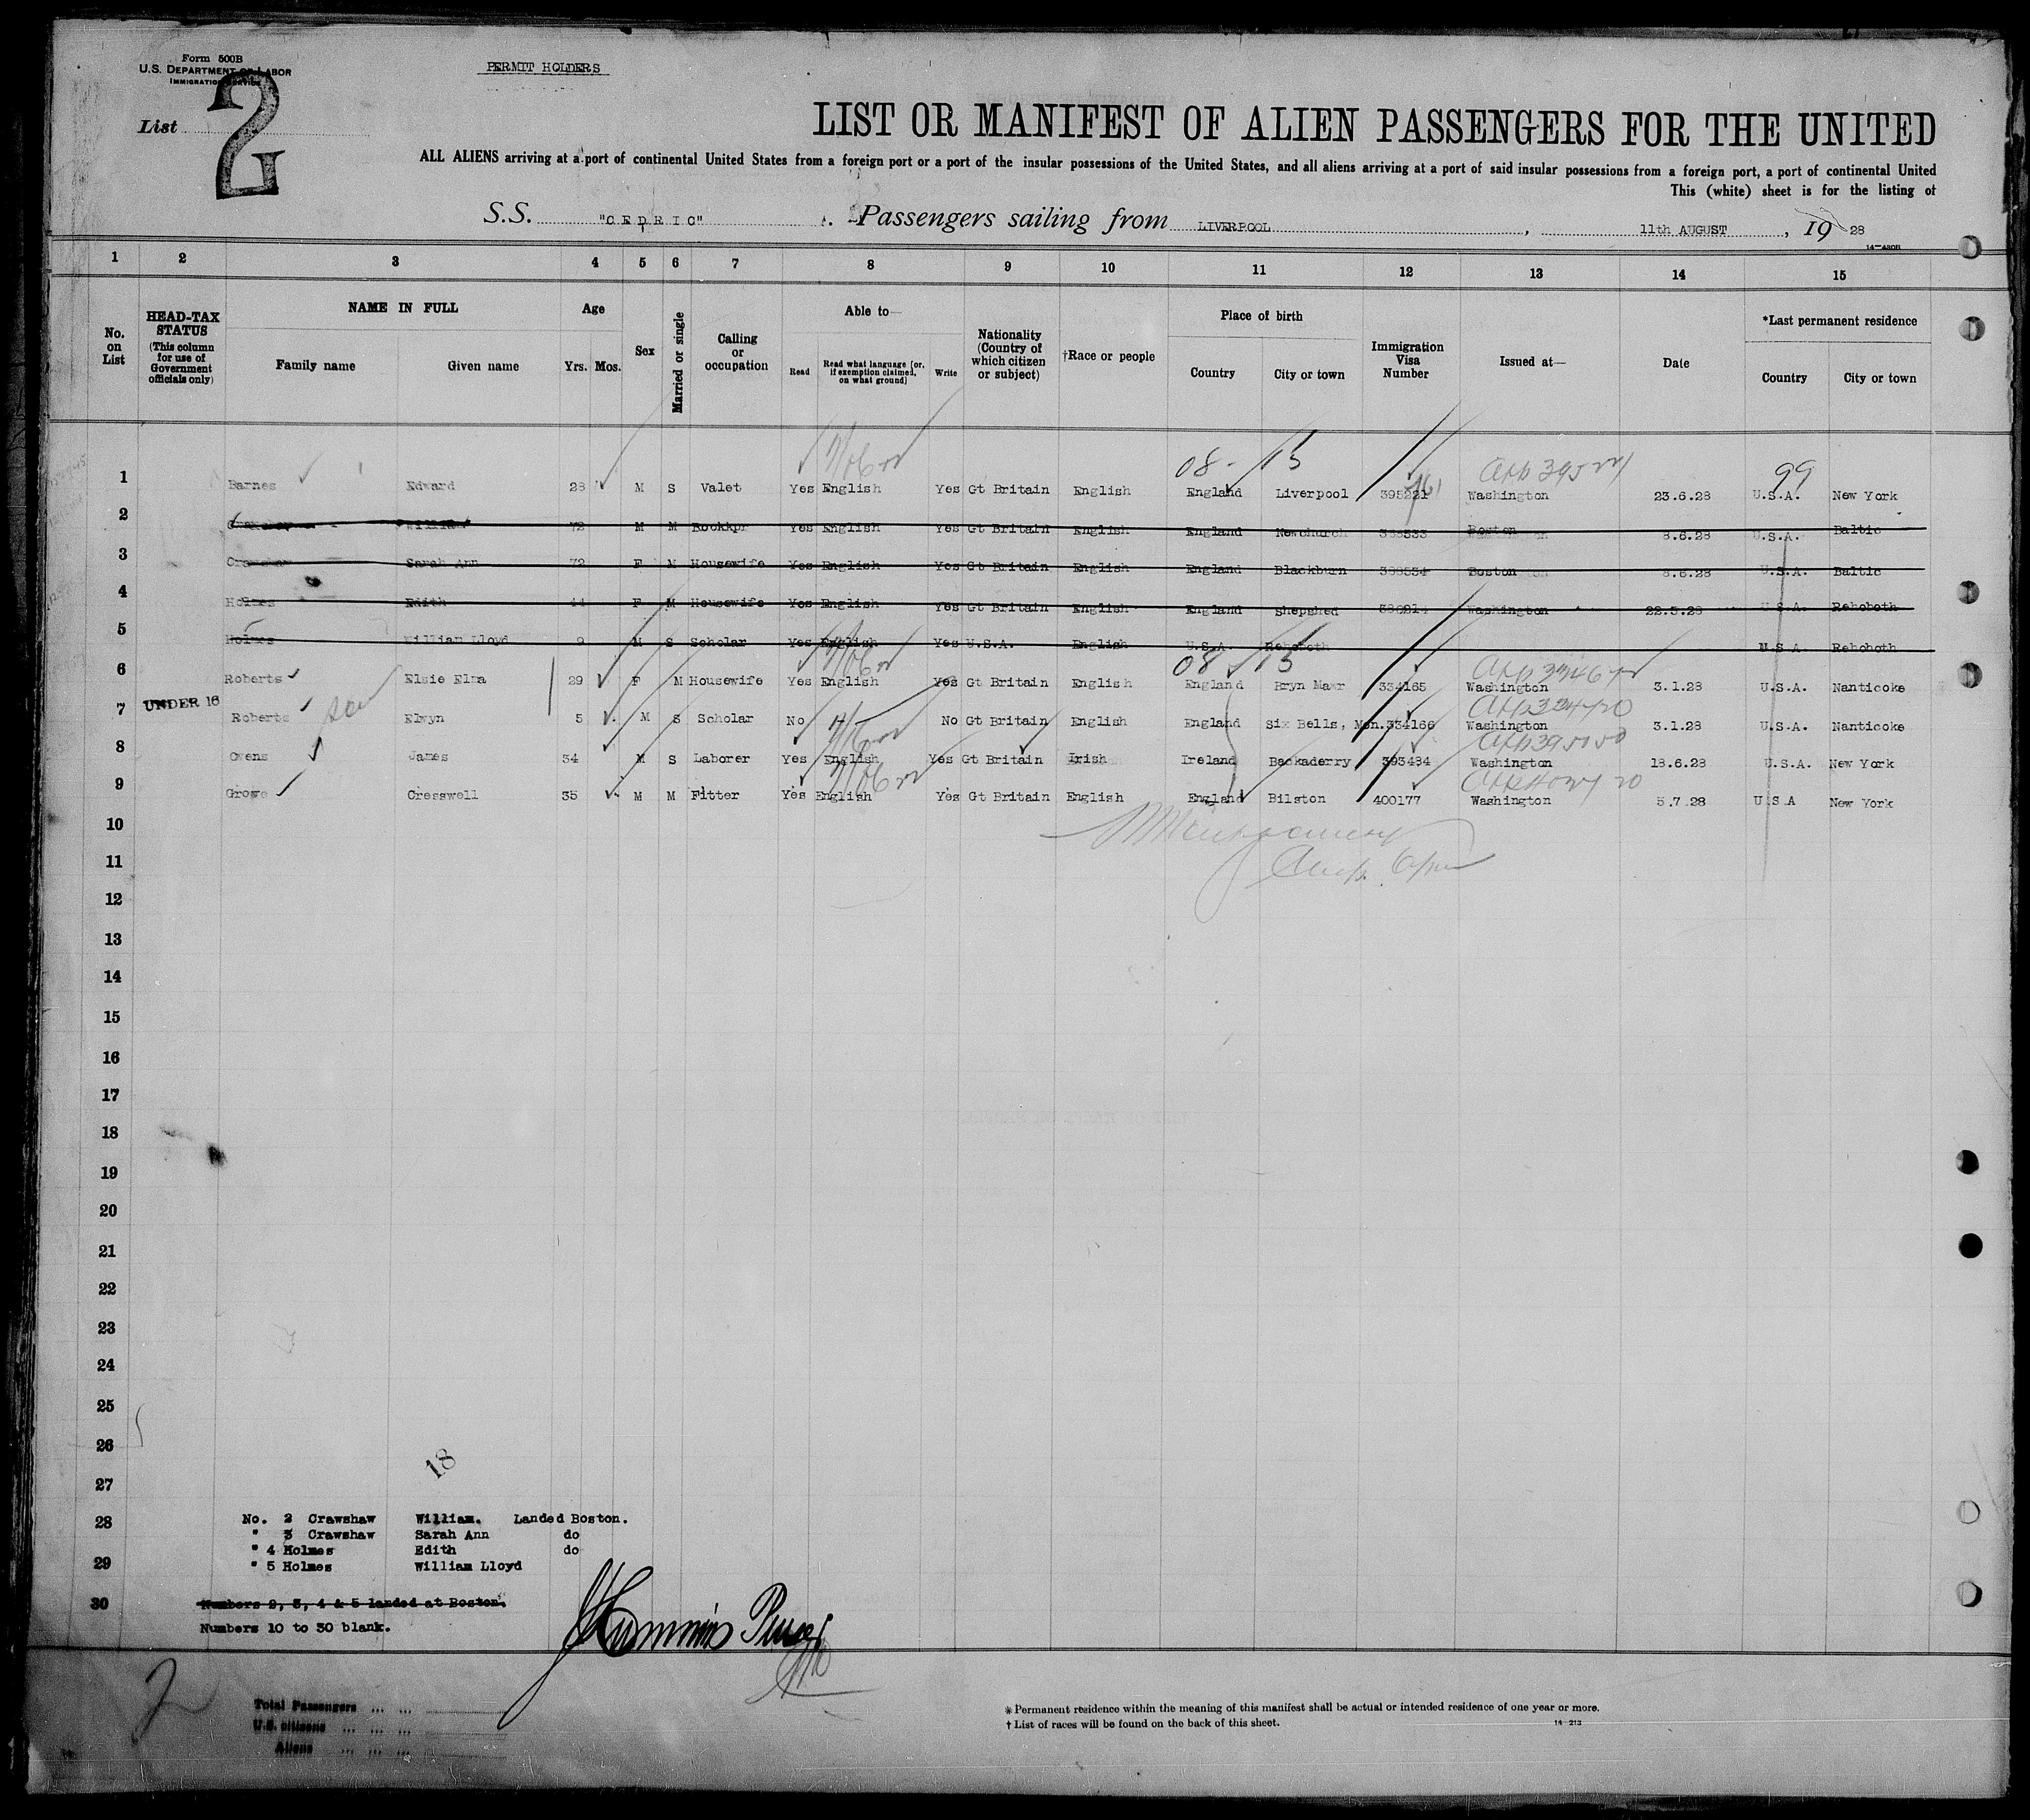 Form 500B
U.S. DEPARTMENT OF LABOR
IMMIGRATION SERVICE
PERMIT HOLDERS
List 2
LIST OR MANIFEST OF ALIEN PASSENGERS FOR THE UNITED
ALL ALIENS arriving at a port of continental United States from a foreign port or a port of the insular possessions of the United States, and all aliens arriving at a port of said insular possessions from a foreign port, a port of continental United
This (white) sheet is for the listing of
S.S. "CEDRIC" Passengers sailing from LIVERPOOL, 11th AUGUST, 1928
14-480B
1 2 3 4 5 6 7 8 9 10 11 12 13 14 15
No. on List
HEAD-TAX STATUS (This column for use of Government officials only)
NAME IN FULL
Family name Given name
Age
Yrs. Mos.
Sex
Married or single
Calling or occupation
Able to—
Read Read what language (or, if exemption claimed, on what ground) Write
Nationality (Country of which citizen or subject)
†Race or people
Place of birth
Country City or town
Immigration Visa Number
Issued at—
Date
*Last permanent residence
Country City or town
08 - 13 99
1 Barnes Edward 28 M S Valet Yes English Yes Gt Britain English England Liverpool 395221 Washington 23.6.28 U.S.A. New York
2 72 M M Bookkpr Yes English Yes Gt Britain English England Newchurch 388533 Boston 8.6.28 U.S.A. Baltic
3 Sarah Ann 72 F M Housewife Yes English Yes Gt Britain English England Blackburn 388534 Boston 8.6.28 U.S.A. Baltic
4 Holmes Edith 44 F M Housewife Yes English Yes Gt Britain English England Shepshed Washington 22.5.28 U.S.A. Rehoboth
5 Holmes William Lloyd 9 M S Scholar Yes English Yes U.S.A. English U.S.A. Rehoboth U.S.A. Rehoboth
08 13
6 Roberts Elsie Elma 29 F M Housewife Yes English Yes Gt Britain English England Bryn Mawr 334165 Washington 3.1.28 U.S.A. Nanticoke
UNDER 16
7 Roberts son Elwyn 5 M S Scholar No No Gt Britain English England Six Bells, Mon. 334166 Washington 3.1.28 U.S.A. Nanticoke
8 Owens James 34 M S Laborer Yes English Yes Gt Britain Irish Ireland Backaderry 393484 Washington 18.6.28 U.S.A. New York
9 Growe Cresswell 35 M M Fitter Yes English Yes Gt Britain English England Bilston 400177 Washington 5.7.28 U.S.A New York
10
11
12
13
14
15
16
17
18
19
20
21
22
23
24
25
26
18
27
28 No. 2 Crawshaw William. Landed Boston.
" 3 Crawshaw Sarah Ann do
" 4 Holmes Edith do
29 " 5 Holmes William Lloyd
30 Numbers 2, 3, 4 & 5 landed at Boston.
Numbers 10 to 30 blank.
2
Total Passengers ... ...
U.S. citizens ... ... ...
Aliens ... ... ...
* Permanent residence within the meaning of this manifest shall be actual or intended residence of one year or more.
† List of races will be found on the back of this sheet.
14-213